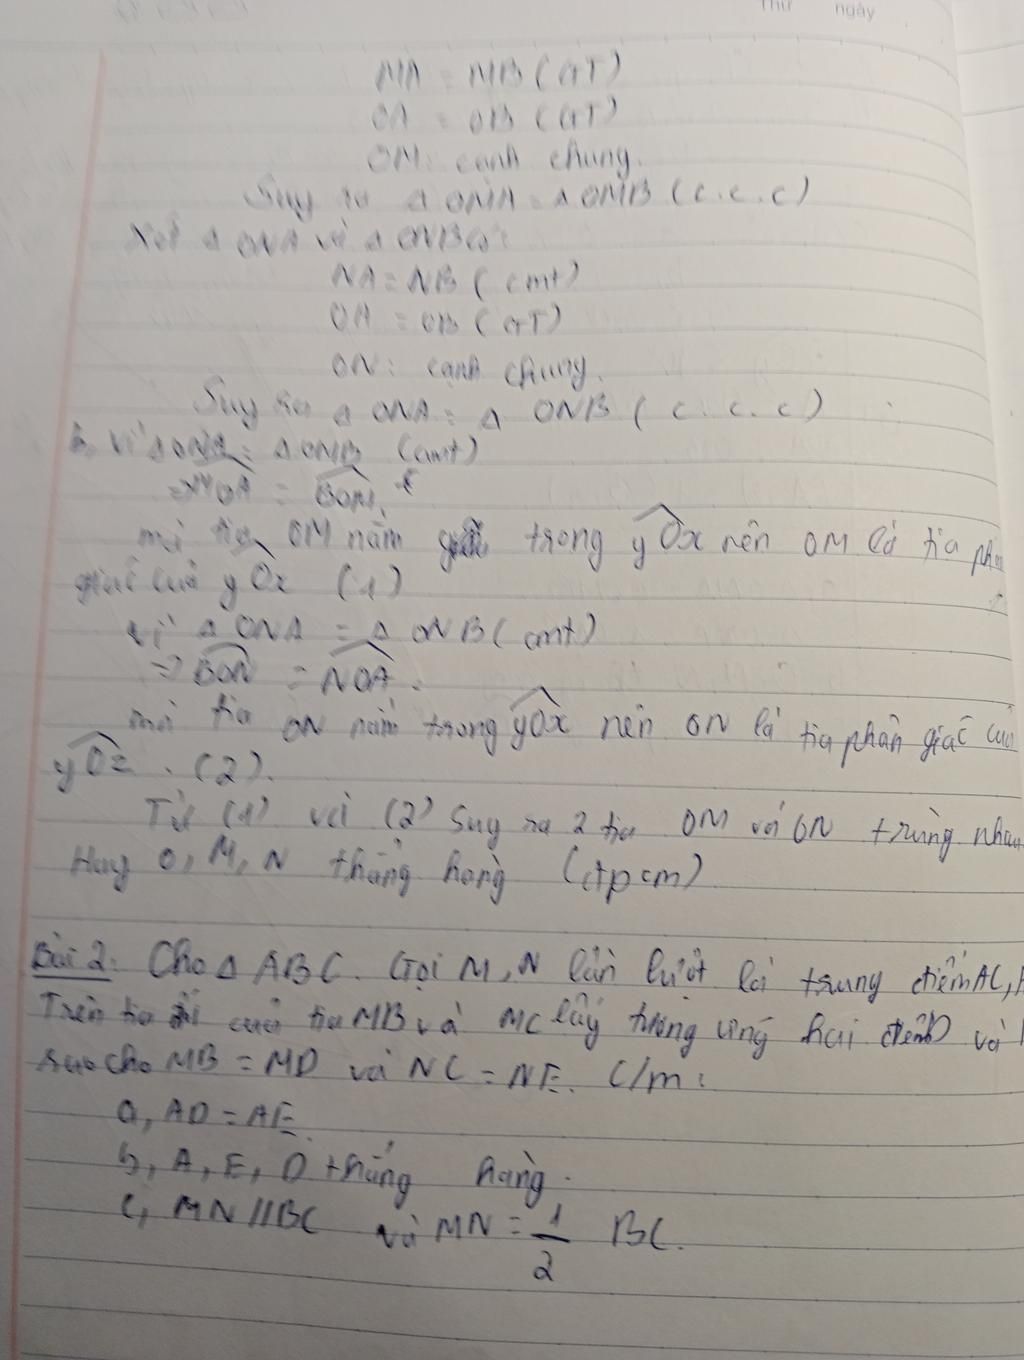 Thứ ngày
MA = MB (GT)
OA = OB (GT)
OM: cạnh chung.
Suy ra Δ OMA = Δ OMB (c.c.c)
Xét Δ ONA và Δ ONB có:
NA = NB (cmt)
OA = OB (GT)
ON: cạnh chung.
Suy ra Δ ONA = Δ ONB (c.c.c)
b, Vì Δ OMA = Δ OMB (cmt)
=> MOA = BOM.
mà tia OM nằm trong yOx nên OM là tia phân
giác của yOx (1)
Vì Δ ONA = Δ ONB (cmt)
=> BON = NOA.
mà tia ON nằm trong yOx nên ON là tia phân giác của
yOx. (2).
Từ (1) và (2) Suy ra 2 tia OM và ON trùng nhau
Hay O, M, N thẳng hàng (đpcm)
Bài 2: Cho Δ ABC. Gọi M, N lần lượt là trung điểm AC,
Trên tia đối của tia MB và MC lấy tương ứng hai điểm D và
sao cho MB = MD và NC = NE. C/m:
a, AD = AE.
b, A, E, D thẳng hàng.
c, MN // BC và MN = 1/2 BC.